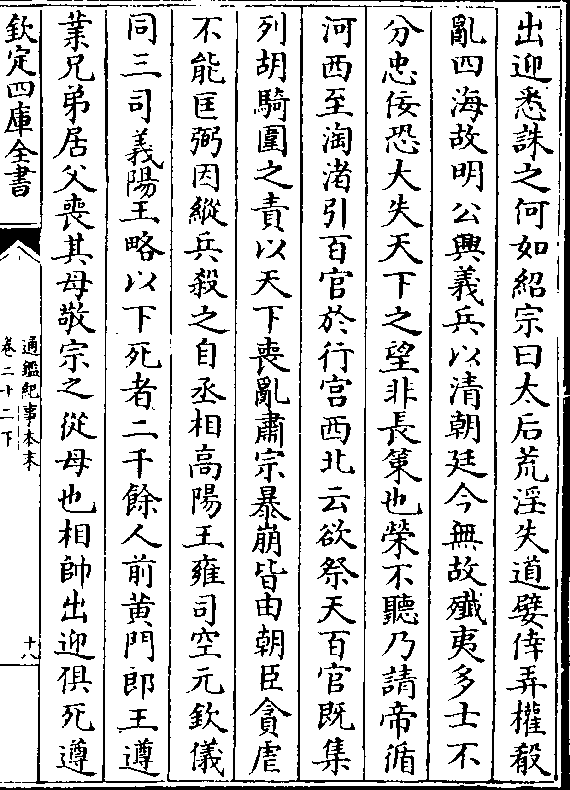 出迎悉誅之何如紹宗曰太后荒淫失道嬖倖弄權殽
亂四海故明公興義兵以清朝廷今無故殲夷多士不
分忠佞恐大失天下之望非長策也榮不聽乃請帝循
河西至淘渚引百官於行宫西北云欲祭天百官既集
列胡騎圍之責以天下喪亂肅宗暴崩皆由朝臣貪虐
不能匡弼因縱兵殺之自丞相高陽王雍司空元欽儀
同三司義陽王略以下死者二千餘人前黄門郎王遵
業兄弟居父喪其母敬宗之從母也相帥出迎俱死遵
欽定四庫全書
通鑑紀事本末
卷二十二下
十八